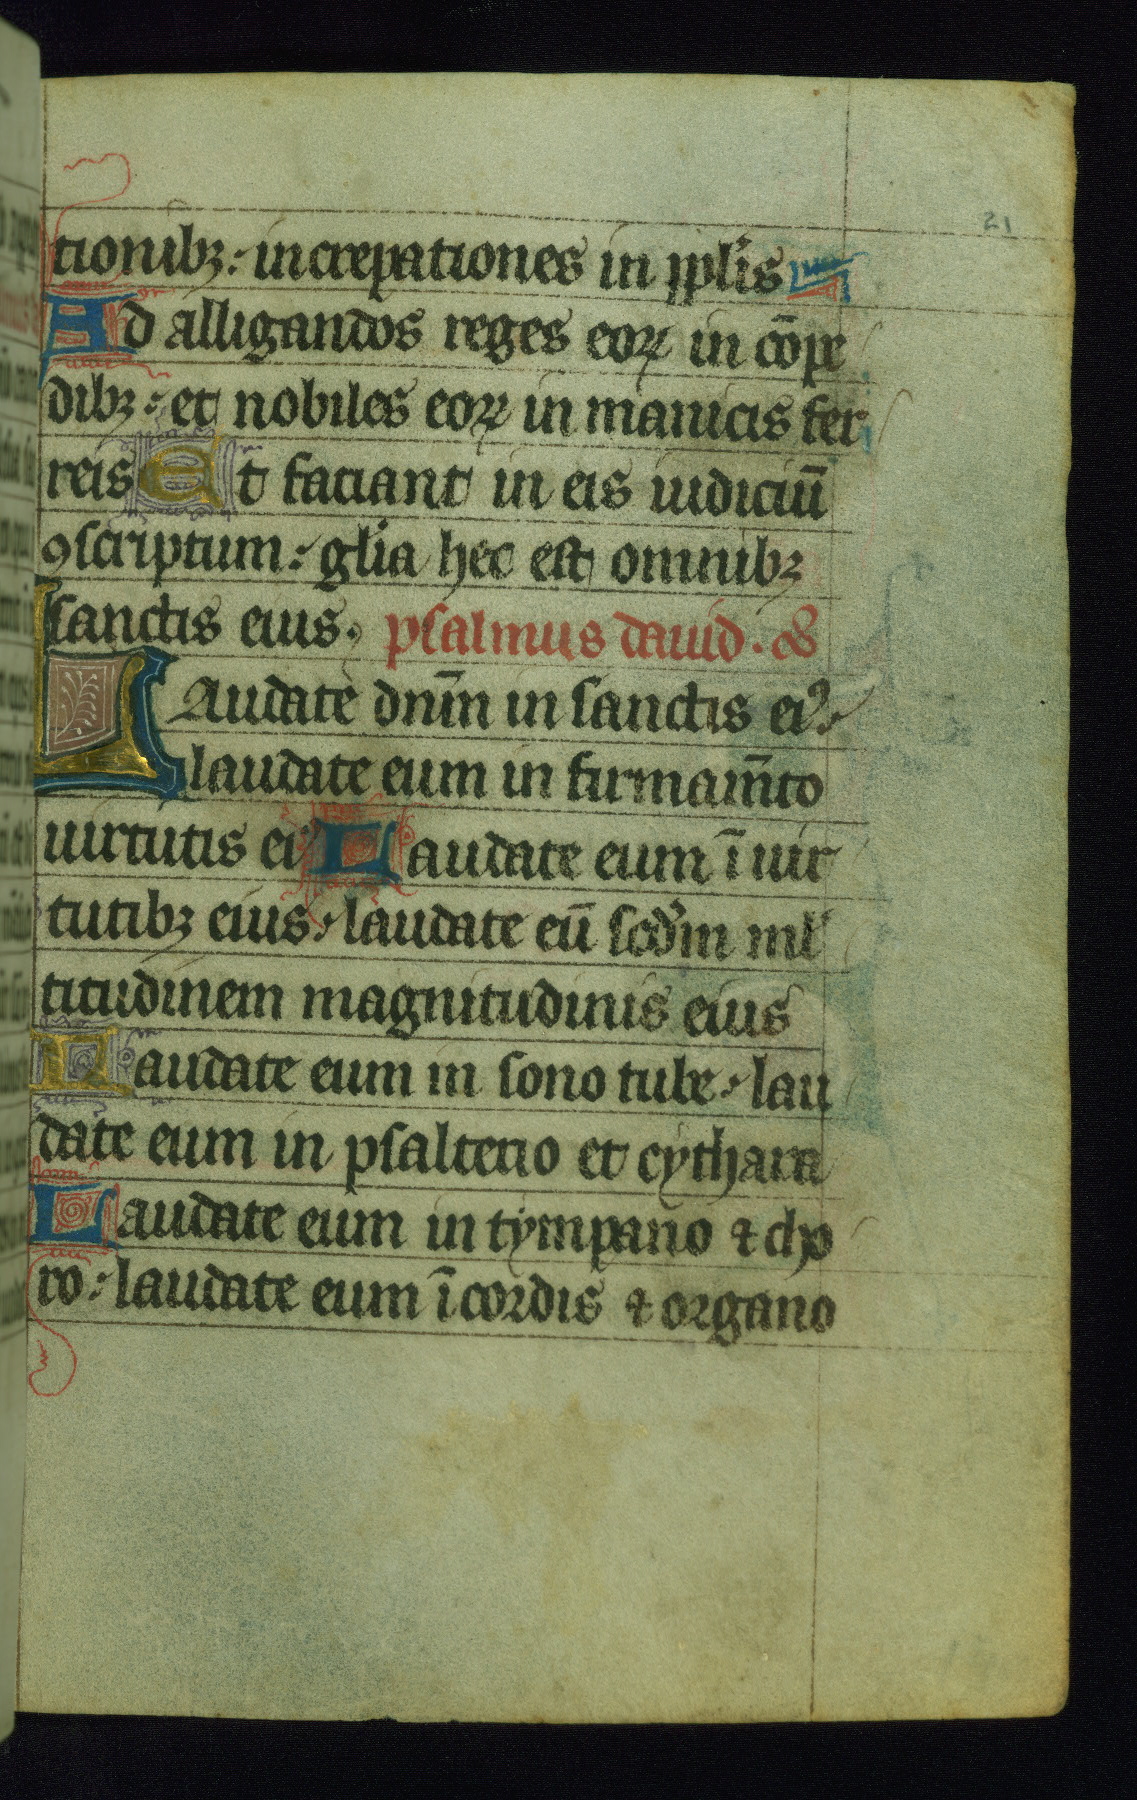 21
tionibꝫ: increpationes in pplis
Ad alligandos reges eoꝝ in cōpe
dibꝫ: et nobiles eoꝝ in manicis fer
reis Et faciant in eis iudiciū
ꝯscriptum: glia hec est omnibꝫ
sanctis eius. psalmus dauid.
Laudate dnm̄ in sanctis eiꝰ:
laudate eum in firmam̄to
uirtutis eiꝰ Laudate eum ī uir
tutibꝫ eius: laudate eū scd'm ml'
titudinem magnitudinis eius
Laudate eum in sono tube: lau
date eum in psalterio et cythara
Laudate eum in tympano ⁊ cho
ro: laudate eum ī cordis ⁊ organo